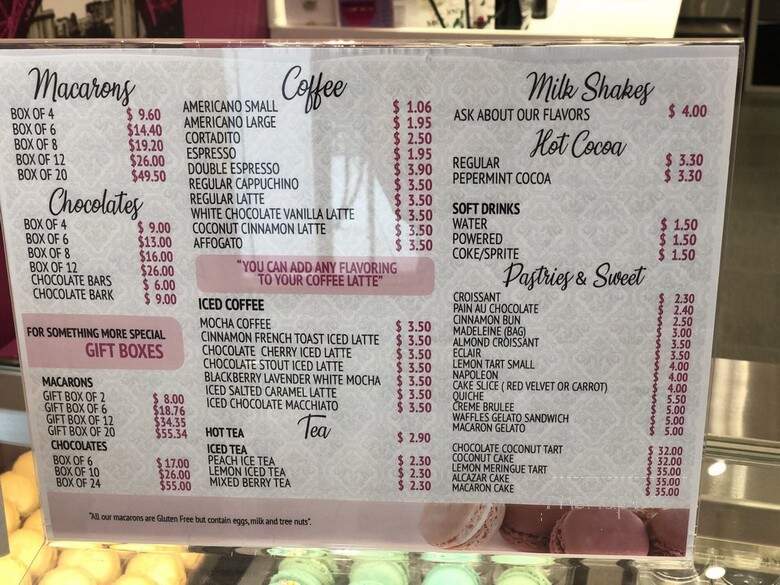 Macarons
BOX OF 4 $ 9.60
BOX OF 6 $14.40
BOX OF 8 $19.20
BOX OF 12 $26.00
BOX OF 20 $49.50
Chocolates
BOX OF 4 $ 9.00
BOX OF 6 $13.00
BOX OF 8 $16.00
BOX OF 12 $26.00
CHOCOLATE BARS $ 6.00
CHOCOLATE BARK $ 9.00
FOR SOMETHING MORE SPECIAL
GIFT BOXES
MACARONS
GIFT BOX OF 2 $ 8.00
GIFT BOX OF 6 $18.76
GIFT BOX OF 12 $34.35
GIFT BOX OF 20 $55.34
CHOCOLATES
BOX OF 6 $ 17.00
BOX OF 10 $26.00
BOX OF 24 $55.00
Coffee
AMERICANO SMALL $ 1.06
AMERICANO LARGE $ 1.95
CORTADITO $ 2.50
ESPRESSO $ 1.95
DOUBLE ESPRESSO $ 3.90
REGULAR CAPPUCHINO $ 3.50
REGULAR LATTE $ 3.50
WHITE CHOCOLATE VANILLA LATTE $ 3.50
COCONUT CINNAMON LATTE $ 3.50
AFFOGATO $ 3.50
"YOU CAN ADD ANY FLAVORING
TO YOUR COFFEE LATTE"
ICED COFFEE
MOCHA COFFEE $ 3.50
CINNAMON FRENCH TOAST ICED LATTE $ 3.50
CHOCOLATE CHERRY ICED LATTE $ 3.50
CHOCOLATE STOUT ICED LATTE $ 3.50
BLACKBERRY LAVENDER WHITE MOCHA $ 3.50
ICED SALTED CARAMEL LATTE $ 3.50
ICED CHOCOLATE MACCHIATO $ 3.50
Tea
HOT TEA $ 2.90
ICED TEA
PEACH ICE TEA $ 2.30
LEMON ICED TEA $ 2.30
MIXED BERRY TEA $ 2.30
Milk Shakes
ASK ABOUT OUR FLAVORS $ 4.00
Hot Cocoa
REGULAR $ 3.30
PEPERMINT COCOA $ 3.30
SOFT DRINKS
WATER $ 1.50
POWERED $ 1.50
COKE/SPRITE $ 1.50
Pastries & Sweet
CROISSANT $ 2.30
PAIN AU CHOCOLATE $ 2.40
CINNAMON BUN $ 2.50
MADELEINE (BAG) $ 3.00
ALMOND CROISSANT $ 3.50
ECLAIR $ 3.50
LEMON TART SMALL $ 4.00
NAPOLEON $ 4.00
CAKE SLICE ( RED VELVET OR CARROT) $ 4.00
QUICHE $ 5.50
CREME BRULEE $ 5.00
WAFFLES GELATO SANDWICH $ 5.00
MACARON GELATO $ 5.00
CHOCOLATE COCONUT TART $ 32.00
COCONUT CAKE $ 32.00
LEMON MERINGUE TART $ 35.00
ALCAZAR CAKE $ 35.00
MACARON CAKE $ 35.00
"All our macarons are Gluten Free but contain eggs, milk and tree nuts".